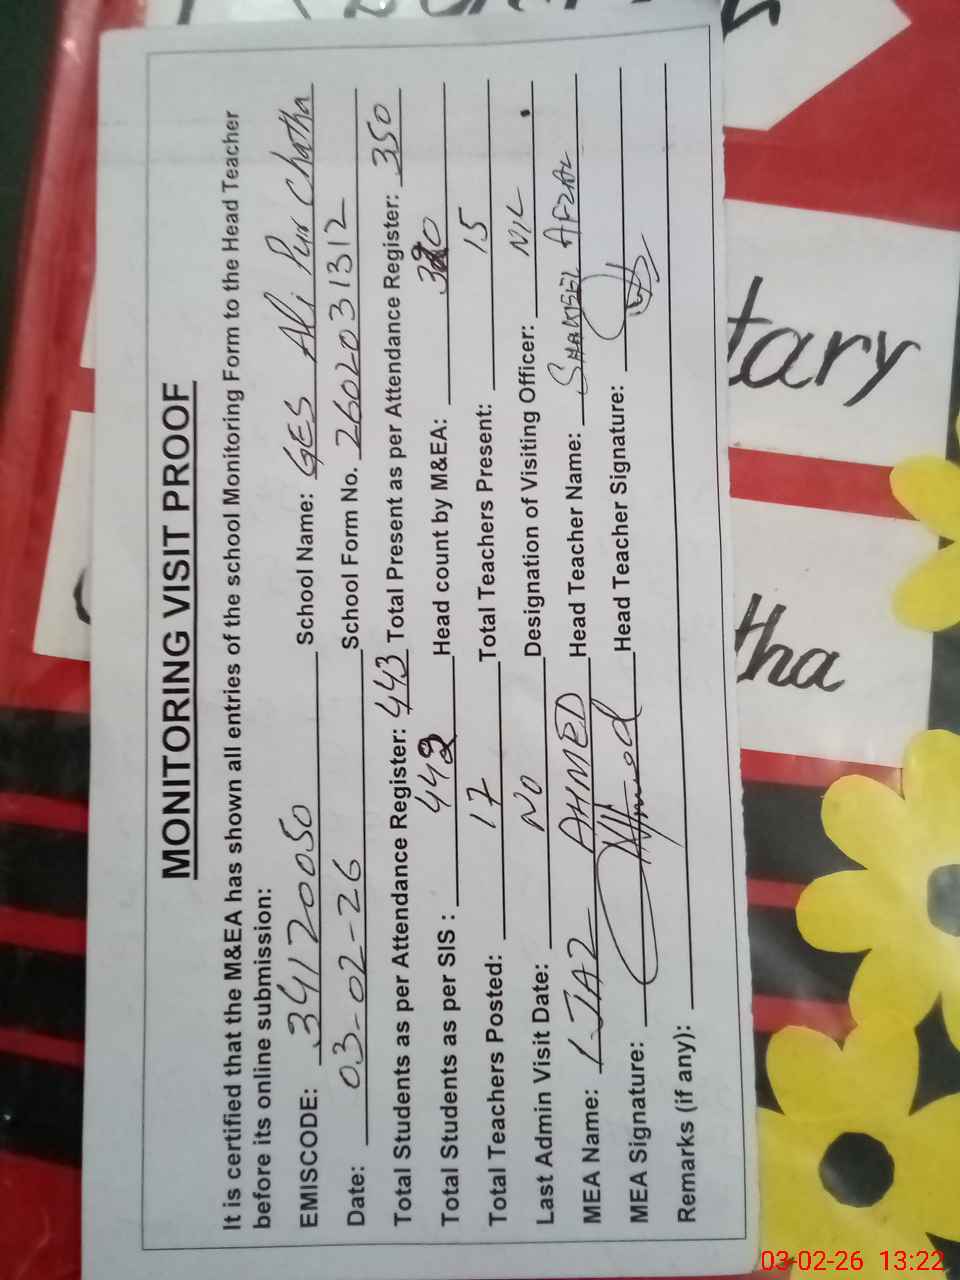 MONITORING VISIT PROOF
It is certified that the M&EA has shown all entries of the school Monitoring Form to the Head Teacher
before its online submission:
EMISCODE: 34120050 School Name: GES Ali Pur Chatha
Date: 03-02-26 School Form No. 2602031312
Total Students as per Attendance Register: 443 Total Present as per Attendance Register: 350
Total Students as per SIS: 442 Head count by M&EA:
Total Teachers Posted: 17 Total Teachers Present: 15
Last Admin Visit Date: No Designation of Visiting Officer: NIL
MEA Name: IJAZ AHMED Head Teacher Name: SHAKEEL AFZAL
MEA Signature: Head Teacher Signature:
Remarks (if any):
tary
tha
03-02-26 13:22